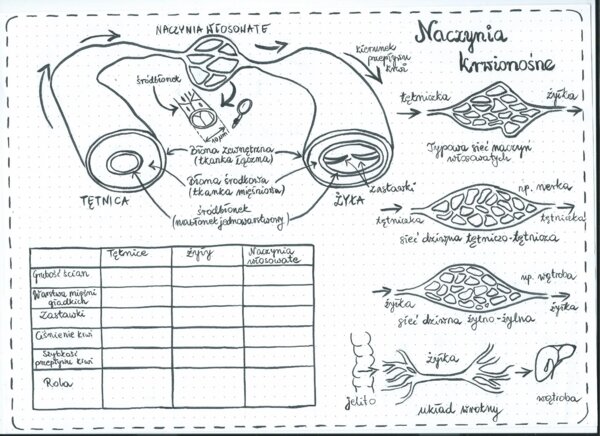 Naczynia
krwionośne
NACZYNIA WŁOSOWATE
kierunek
przepływu
krwi
śródbłonek
Błona zewnętrzna
(tkanka łączna)
Błona środkowa
(tkanka mięśniowa)
śródbłonek
(nabłonek jednowarstwowy)
TĘTNICA
ŻYŁA
zastawki
tętniczka
żyłka
Typowa sieć naczyń
włosowatych
np. nerka
tętniczka
tętniczka
sieć dziwna tętniczo-tętnicza
np. wątroba
żyłka
żyłka
sieć dziwna żylno-żylna
żyłka
jelito
wątroba
układ wrotny
Tętnice
Żyły
Naczynia
włosowate
Grubość ścian
Warstwa mięśni
gładkich
Zastawki
Ciśnienie krwi
Szybkość
przepływu krwi
Rola